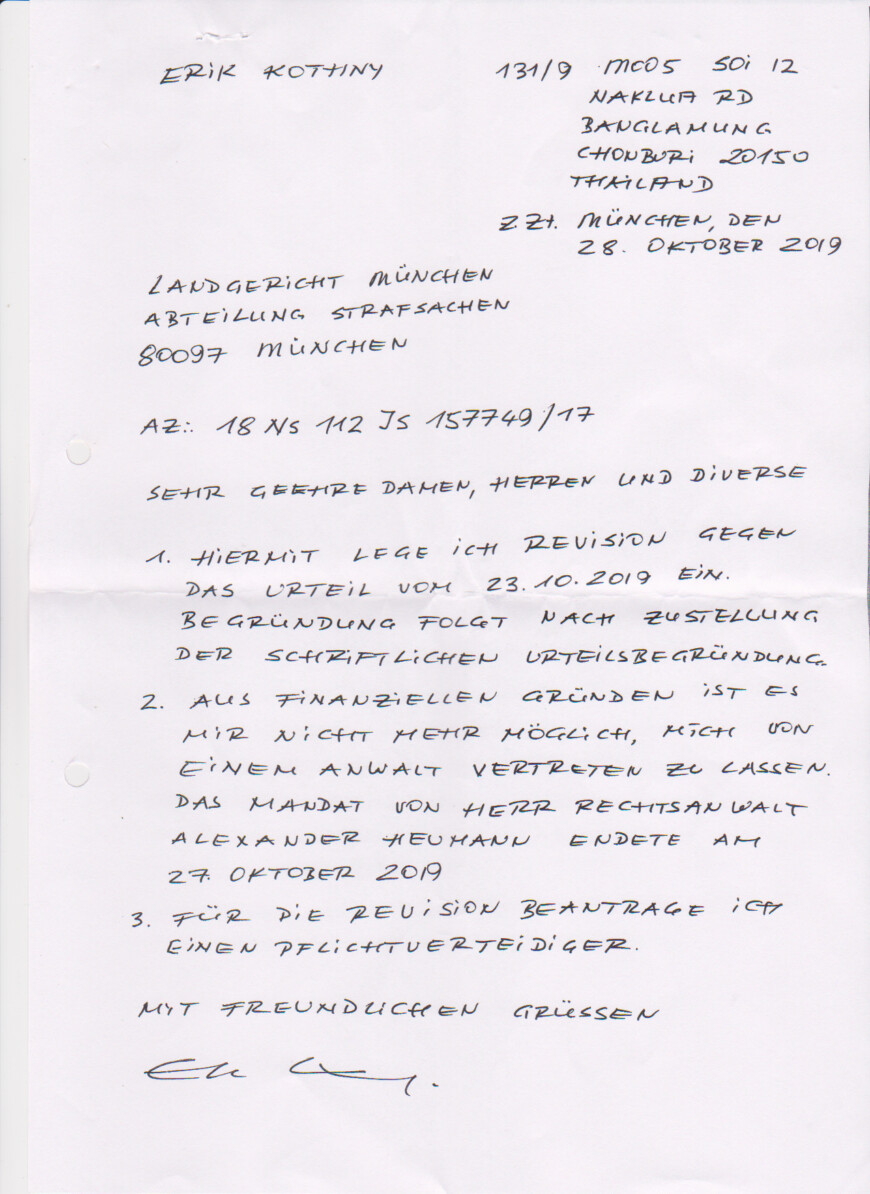 ERIK KOTHNY
131/9 MOO5 SOI 12
NAKLUA RD
BANGLAMUNG
CHONBURI 20150
THAILAND
Z.Zt. MÜNCHEN, DEN
28. OKTOBER 2019
LANDGERICHT MÜNCHEN
ABTEILUNG STRAFSACHEN
80097 MÜNCHEN
AZ.: 18 Ns 112 JS 157749/17
SEHR GEEHRE DAMEN, HERREN UND DIVERSE
1. HIERMIT LEGE ICH REVISION GEGEN
DAS URTEIL VOM 23.10.2019 EIN.
BEGRÜNDUNG FOLGT NACH ZUSTELLUNG
DER SCHRIFTLICHEN URTEILSBEGRÜNDUNG.
2. AUS FINANZIELLEN GRÜNDEN IST ES
MIR NICHT MEHR MÖGLICH, MICH VON
EINEM ANWALT VERTRETEN ZU LASSEN.
DAS MANDAT VON HERR RECHTSANWALT
ALEXANDER HEUMANN ENDETE AM
27. OKTOBER 2019
3. FÜR DIE REVISION BEANTRAGE ICH
EINEN PFLICHTVERTEIDIGER.
MIT FREUNDLICHEN GRÜSSEN